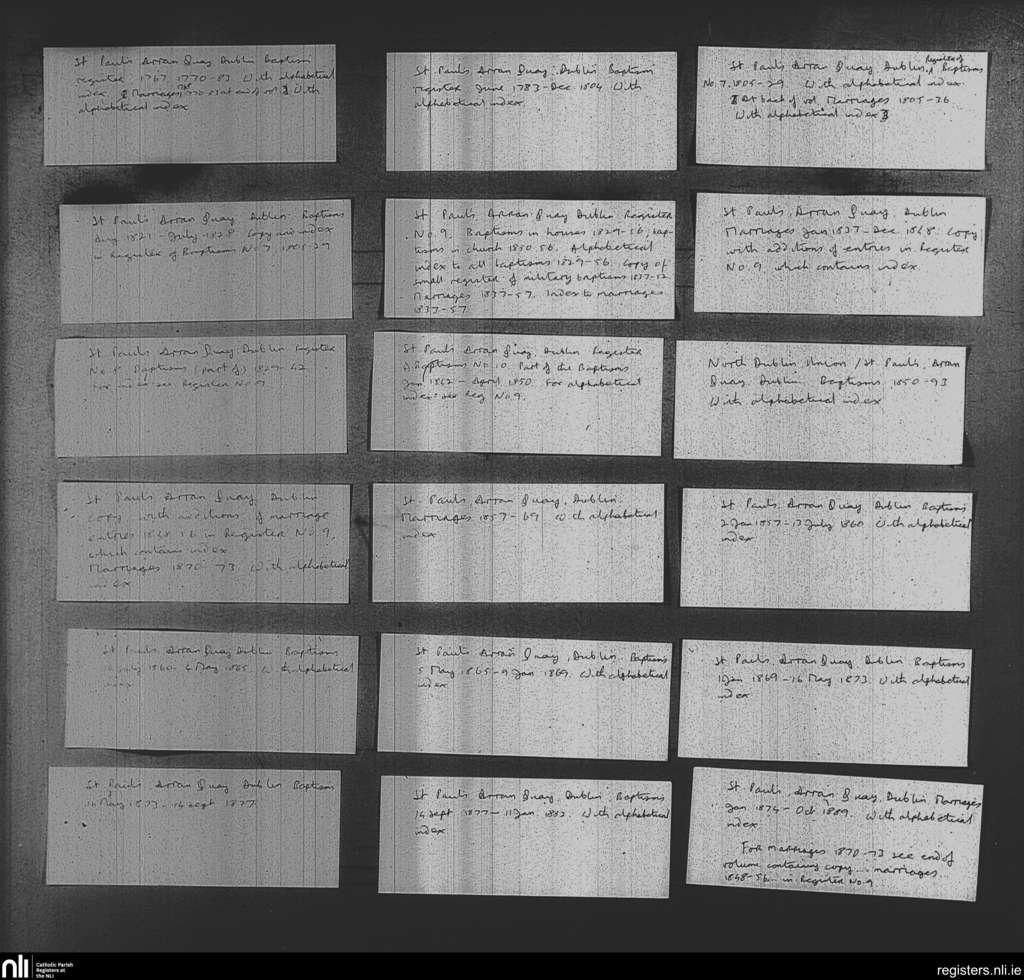 St Paul's Arran Quay Dublin Baptism
register 1767, 1770-83 With alphabetical
index [Marriages 1770-83 at end of vol] With
alphabetical index
St Paul's Arran Quay, Dublin Baptism
register June 1783-Dec 1804 With
alphabetical index
St Paul's Arran Quay Dublin, Register of Baptisms
No. 7. 1805-29 With alphabetical index
[At back of vol. Marriages 1805-36
With alphabetical index]
St Paul's Arran Quay Dublin Baptisms
Aug 1821 - July 1828 Copy
in Register of Baptisms No 7 1805-29
St Paul's, Arran Quay Dublin Register
No. 9. Baptisms in houses 1829-56, bap-
tisms in church 1850-56. Alphabetical
index to all baptisms 1829-56. Copy of
small register of military baptisms 1837-52
Marriages 1837-57. Index to marriages
1837-57
St Paul's, Arran Quay, Dublin
Marriages Jan 1837-Dec 1848. Copy
with additions of entries in Register
No. 9. which contains index.
St Paul's Arran Quay Dublin Register
No 8 Baptisms (part of) 1829-42
For index see Register No 9
St Paul's Arran Quay, Dublin Register
of Baptisms No 10 Part of the Baptisms
Jan 1842 - April 1850. For alphabetical
index see Reg No. 9.
North Dublin Union / St Paul's, Arran
Quay, Dublin. Baptisms, 1850-93
With alphabetical index
St Paul's Arran Quay Dublin
Copy with additions of marriage
entries 1848-56 in Register No 9,
which contains index
Marriages 1870-73. With alphabetical
index
St. Paul's Arran Quay, Dublin.
Marriages 1857-69 With alphabetical
index
St Paul's Arran Quay Dublin Baptisms
2 Jan 1857-17 July 1860 With alphabetical
index
St Paul's Arran Quay Dublin Baptisms
July 1860- 4 May 1865. With alphabetical
index
St Paul's Arran Quay, Dublin. Baptisms
5 May 1865-9 Jan 1869. With alphabetical
index
St Paul's, Arran Quay Dublin Baptisms
1 Jan 1869-16 May 1873. With alphabetical
index
St Paul's Arran Quay Dublin Baptisms
16 May 1873-14 Sept 1877
St Paul's Arran Quay, Dublin Baptisms
14 Sept 1877-11 Jan 1882. With alphabetical
index
St Paul's, Arran Quay, Dublin Marriages
Jan 1874 - Oct 1889. With alphabetical
index
For marriages 1870-73 see end of
volume containing copy marriages
1848-56 in Register No 9
nli
Catholic Parish
Registers at
the NLI
registers.nli.ie